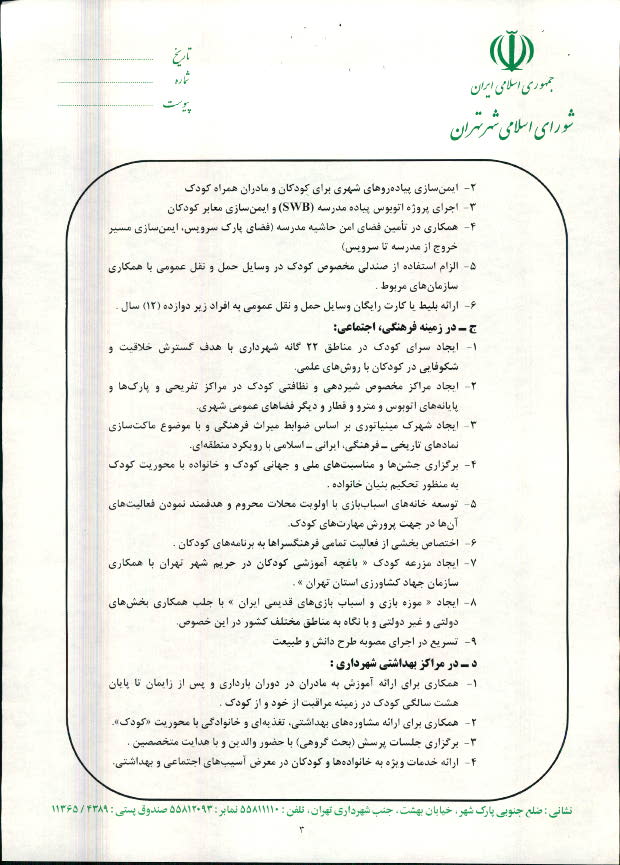 جمهوری اسلامی ایران
شورای اسلامی شهر تهران
تاریخ
شماره
پیوست
۲- ایمن‌سازی پیاده‌روهای شهری برای کودکان و مادران همراه کودک
۳- اجرای پروژه اتوبوس پیاده مدرسه (SWB) و ایمن‌سازی معابر کودکان
۴- همکاری در تأمین فضای امن حاشیه مدرسه (فضای پارک سرویس، ایمن‌سازی مسیر
خروج از مدرسه تا سرویس)
۵- الزام استفاده از صندلی مخصوص کودک در وسایل حمل و نقل عمومی با همکاری
سازمان‌های مربوط .
۶- ارائه بلیط یا کارت رایگان وسایل حمل و نقل عمومی به افراد زیر دوازده (۱۲) سال .
ج ــ در زمینه فرهنگی، اجتماعی:
۱- ایجاد سرای کودک در مناطق ۲۲ گانه شهرداری با هدف گسترش خلاقیت و
شکوفایی در کودکان با روش‌های علمی.
۲- ایجاد مراکز مخصوص شیردهی و نظافتی کودک در مراکز تفریحی و پارک‌ها و
پایانه‌های اتوبوس و مترو و قطار و دیگر فضاهای عمومی شهری.
۳- ایجاد شهرک مینیاتوری بر اساس ضوابط میراث فرهنگی و با موضوع ماکت‌سازی
نمادهای تاریخی ــ فرهنگی، ایرانی ــ اسلامی با رویکرد منطقه‌ای.
۴- برگزاری جشن‌ها و مناسبت‌های ملی و جهانی کودک و خانواده با محوریت کودک
به منظور تحکیم بنیان خانواده .
۵- توسعه خانه‌های اسباب‌بازی با اولویت محلات محروم و هدفمند نمودن فعالیت‌های
آن‌ها در جهت پرورش مهارت‌های کودک.
۶- اختصاص بخشی از فعالیت تمامی فرهنگسراها به برنامه‌های کودکان .
۷- ایجاد مزرعه کودک « باغچه آموزشی کودکان در حریم شهر تهران با همکاری
سازمان جهاد کشاورزی استان تهران » .
۸- ایجاد « موزه بازی و اسباب بازی‌های قدیمی ایران » با جلب همکاری بخش‌های
دولتی و غیر دولتی و با نگاه به مناطق مختلف کشور در این خصوص.
۹- تسریع در اجرای مصوبه طرح دانش و طبیعت
د ــ در مراکز بهداشتی شهرداری :
۱- همکاری برای ارائه آموزش به مادران در دوران بارداری و پس از زایمان تا پایان
هشت سالگی کودک در زمینه مراقبت از خود و از کودک .
۲- همکاری برای ارائه مشاوره‌های بهداشتی، تغذیه‌ای و خانوادگی با محوریت «کودک».
۳- برگزاری جلسات پرسش (بحث گروهی) با حضور والدین و با هدایت متخصصین .
۴- ارائه خدمات ویژه به خانواده‌ها و کودکان در معرض آسیب‌های اجتماعی و بهداشتی.
نشانی : ضلع جنوبی پارک شهر، خیابان بهشت، جنب شهرداری تهران، تلفن : ۵۵۸۱۱۱۱۰ نمابر : ۵۵۸۱۲۰۹۳ صندوق پستی : ۴۳۸۹ / ۱۱۳۶۵
۳